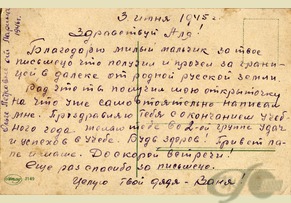 3 июня 1945 г.
Здравствуй Алд!
Благодарю милый мальчик за твое
письмецо что получил и прочел за грани-
цей в далеке от родной русской земли.
Рад что ты получил мою открыточку
на что уже самостоятельно написал
мне. Поздравляю тебя с окончанием учеб-
ного года. Желаю тебе во 2-ой группе удач
и успехов в учебе. Будь здоров! Привет па-
пе и маме. До скорой встречи!
Еще раз спасибо за письмецо.
Целую твой дядя - Ваня!
1945 г.